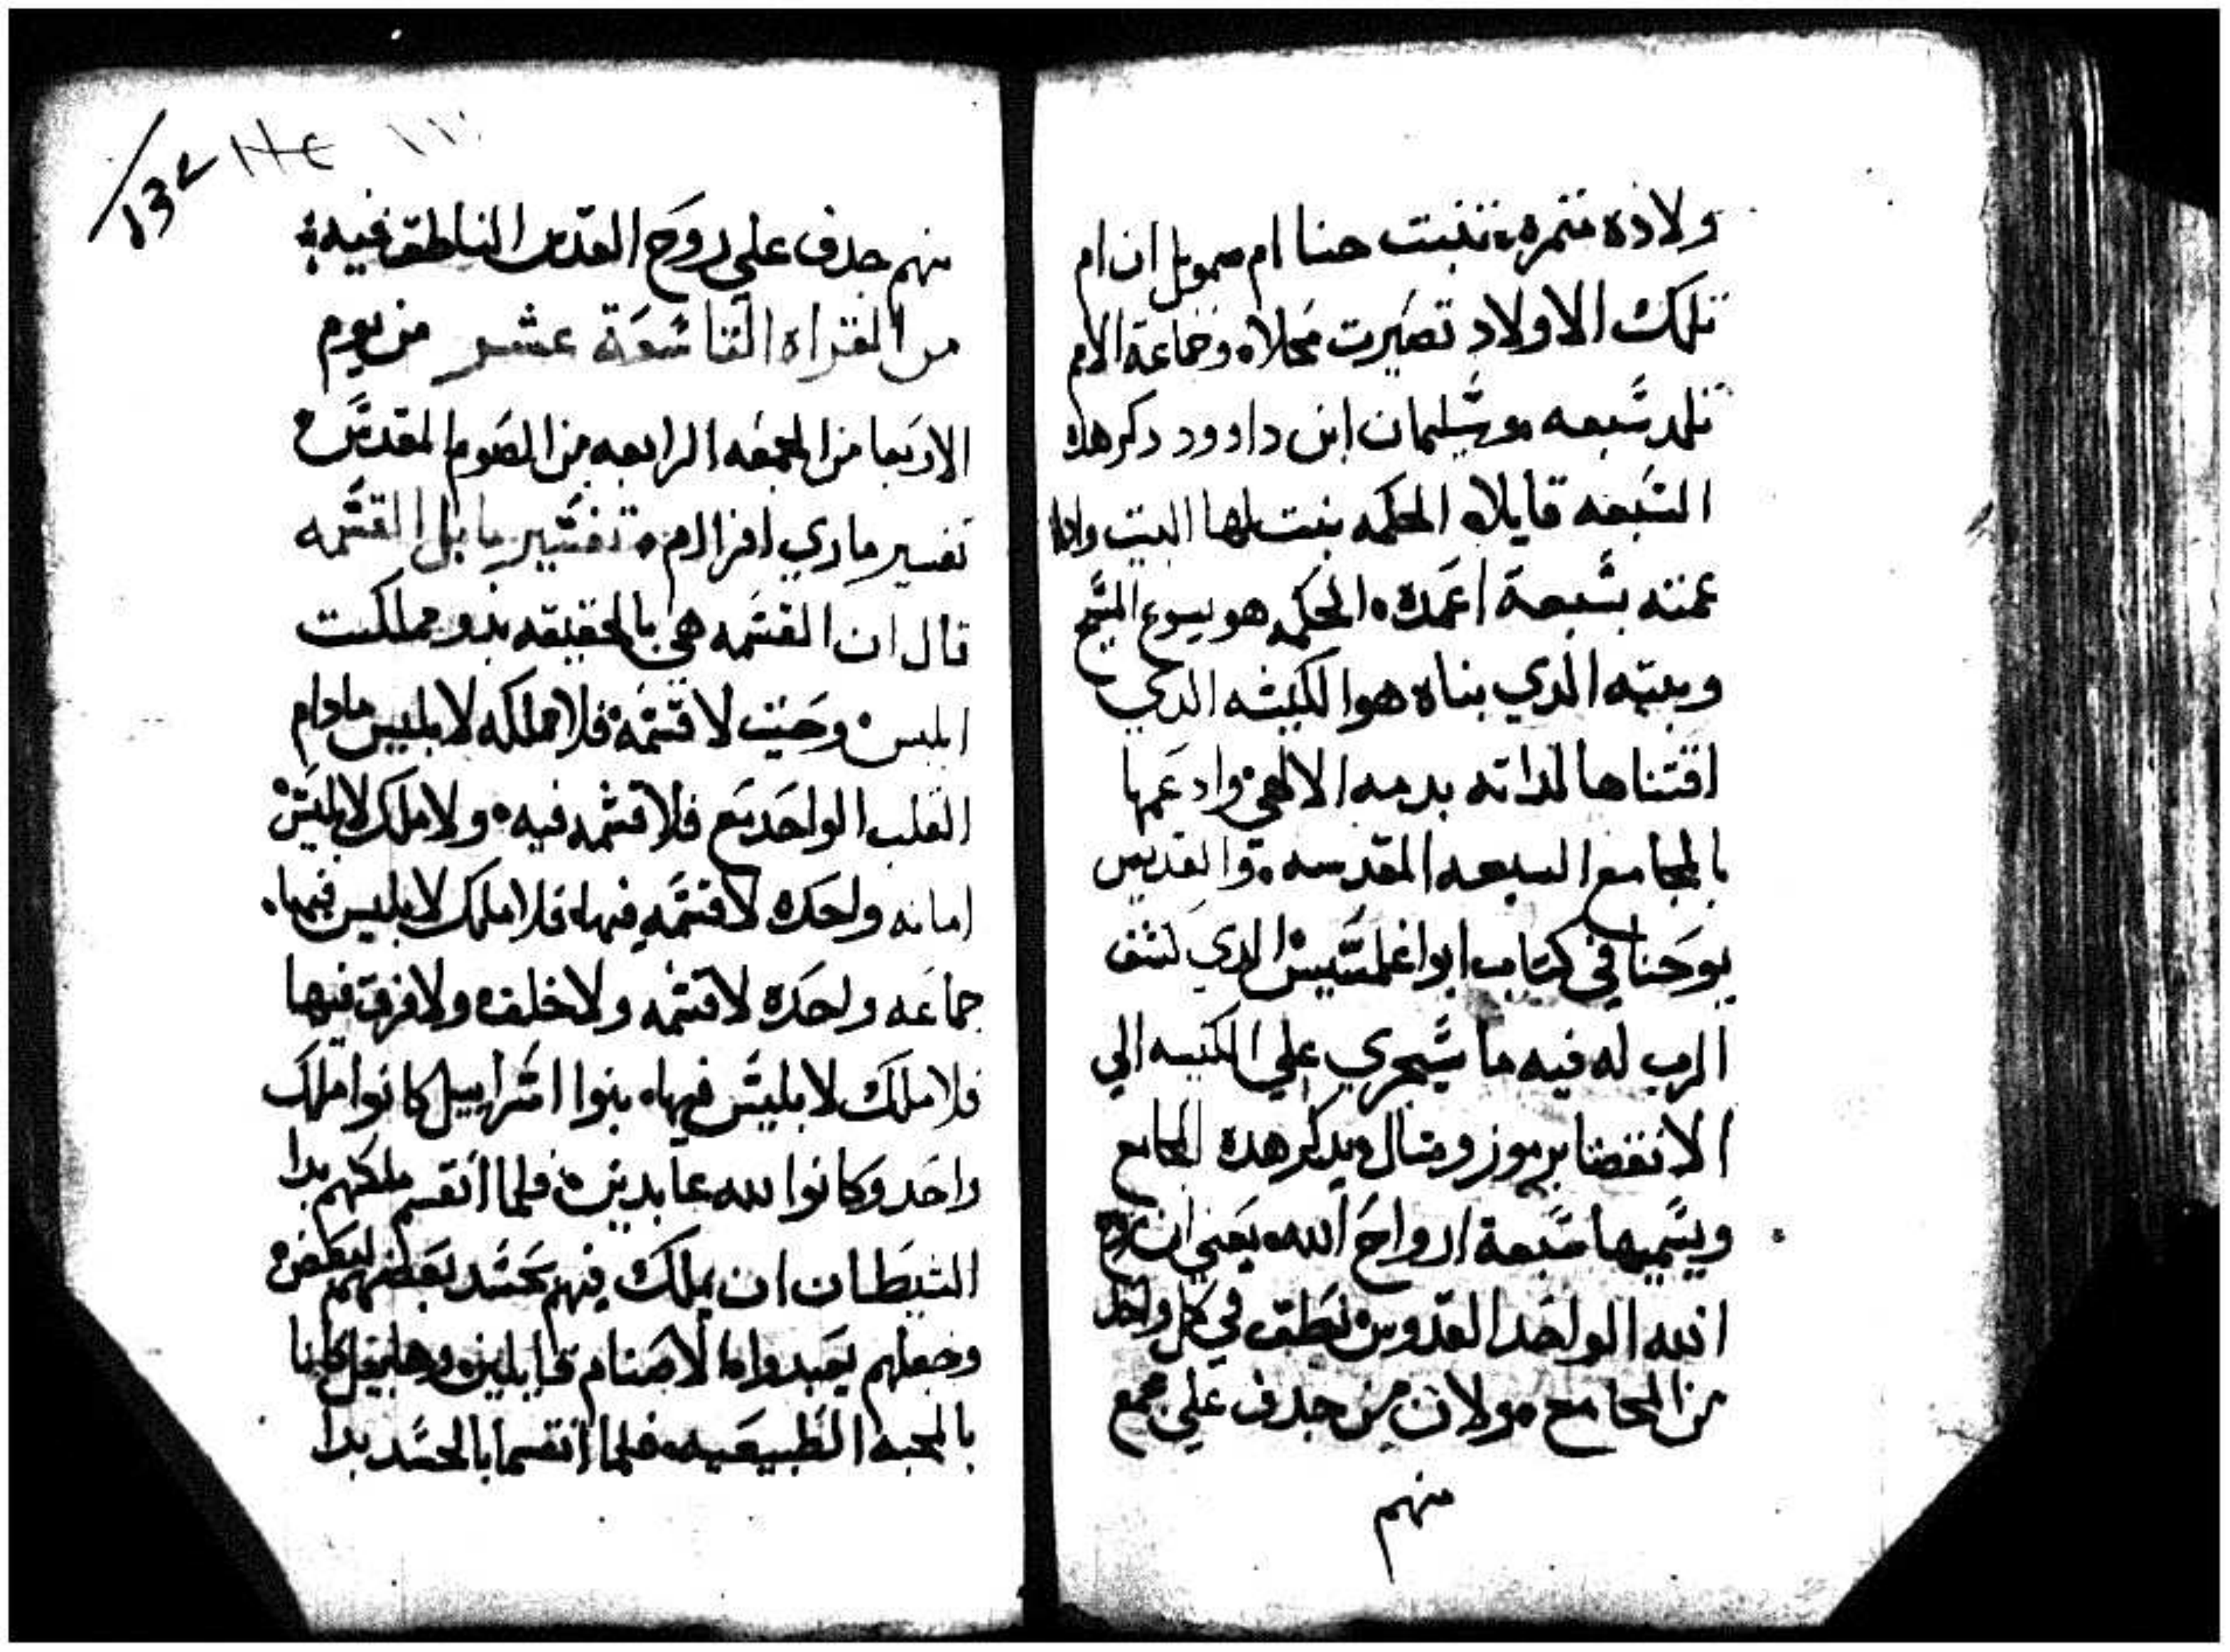 ولاده متمره تنبت حنا ام صمويل ان ام
تلك الاولاد تصيرت محلاه وجماعة الامم
تلد سبعه وسليمان ابن داوود دكر هده
السبعه قايلا الحكمه بنت لها البيت وادا
عمته بسبعة اعمده الحكمه هو يسوع المسيح
وبيته الدي بناه هوا الكنيسه الدي
اقتناها لداته بدمه الالاهي وادعمها
بالمجامع السبعه المقدسه والقديس
يوحنا في كتاب ابواغلمسيس الدي كشف
الرب له فيه ما سيجري علي الكنيسه الي
الانقضا برموز ومتال ويدكر هده المجامع
ويسميها سبعة ارواح الله يعني ان روح
الله الواحد القدوس نطق في كل واحد
من المجامع ولان من جدف علي مجمع
منهم
132
منهم جدف علي روح القدس الناطق فيه
من القراه التاسعة عشر من يوم
الاربعا من الجمعه الرابعه من الصوم المقدس
تفسير ماري افرام تفسير ما بل القسمه
قال ان القسمه هي بالحقيقه بدو مملكت
ابليس وحيت لا قسمه فلا مملكه لابليس مادام
القلب الواحد مع فلا قسمه فيه ولا ملك لابليس
امانه واحده لا قسمه فيها فلا ملك لابليس فيها
جماعه واحده لا قسمه ولا خلف ولا فرق فيها
فلا ملك لابليس فيها بنوا اسراييل كانوا ملك
واحد وكانوا لله عابدين فلما انقسم ملكهم بدا
الشيطان ان يملك فيهم بحسد بعضهم لبعض
وجعلهم يعبدوا الاصنام قايلين وهابيل كانا
بالمحبه الطبيعيه فلما انقسما بالحسد بدا